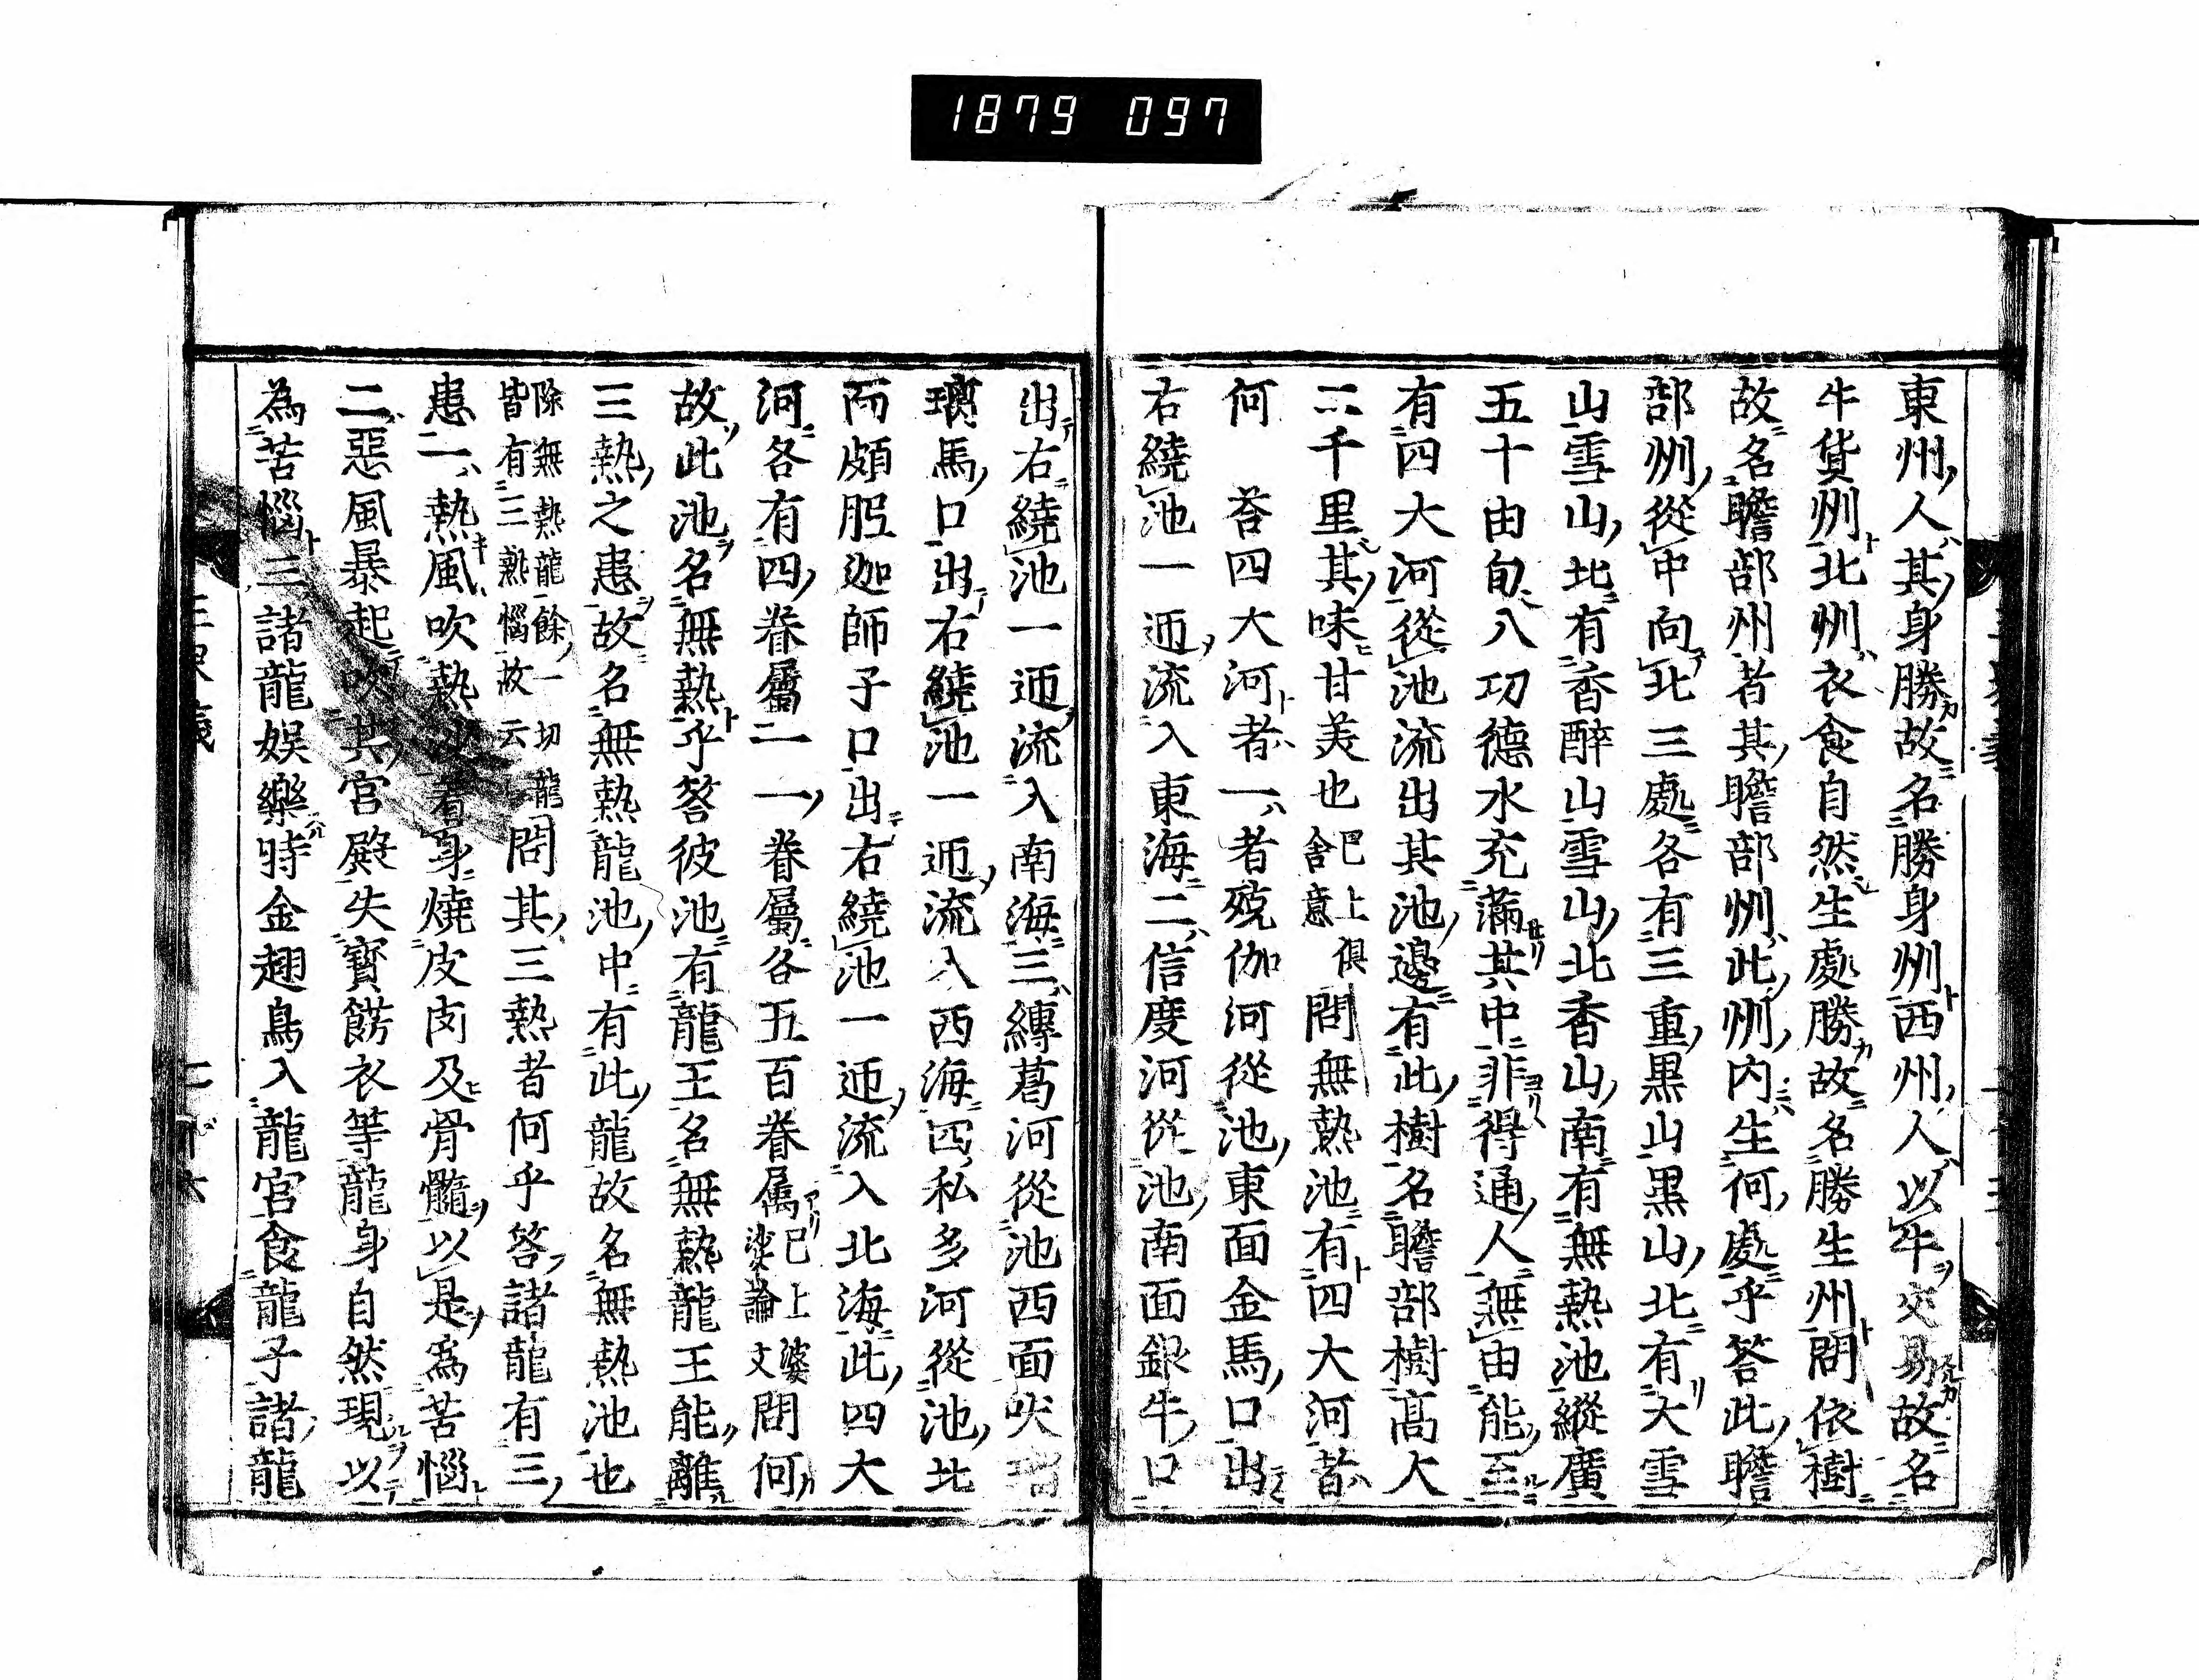 1879 097
東州人其身勝故名勝身州西州人以牛交易故名
牛貨州北州衣食自然生處勝故名勝生州問依樹
故名瞻部州者其瞻部州此州内生何處乎答此瞻
部州從中向北三處各有三重黒山黒山北有大雪
山雪山北有香醉山雪山北香山南有無熱池縱廣
五十由旬八功德水充滿其中非得通人無由能至
有四大河從池流出其池邊有此樹名瞻部樹高大
二千里其味甘美也巳上俱舎意問無熱池有四大河者
何 答四大河者一者殑伽河從池東面金馬口出
右繞池一迊流入東海二信度河從池南面銀牛口
出右繞池一迊流入南海三縛蒭河從池西面吠瑠
璃馬口出右繞池一迊流入西海四私多河從池北
面頗胝迦師子口出右繞池一迊流入北海此四大
河各有四眷屬二一一眷屬各五百眷属巳上婆娑論文問何
故此池名無熱乎答彼池有龍王名無熱龍王能離
三熱之患故名無熱龍池中有此龍故名無熱池也
除無熱龍餘一切龍皆有三熱惱故云問其三熱者何乎答諸龍有三
患一熱風吹熱沙著身燒皮肉及骨髓以是爲苦惱
二惡風暴起吹其宮殿失寶餝衣等龍身自然現以
為苦惱三諸龍娯樂時金翅鳥入龍宮食龍子諸龍